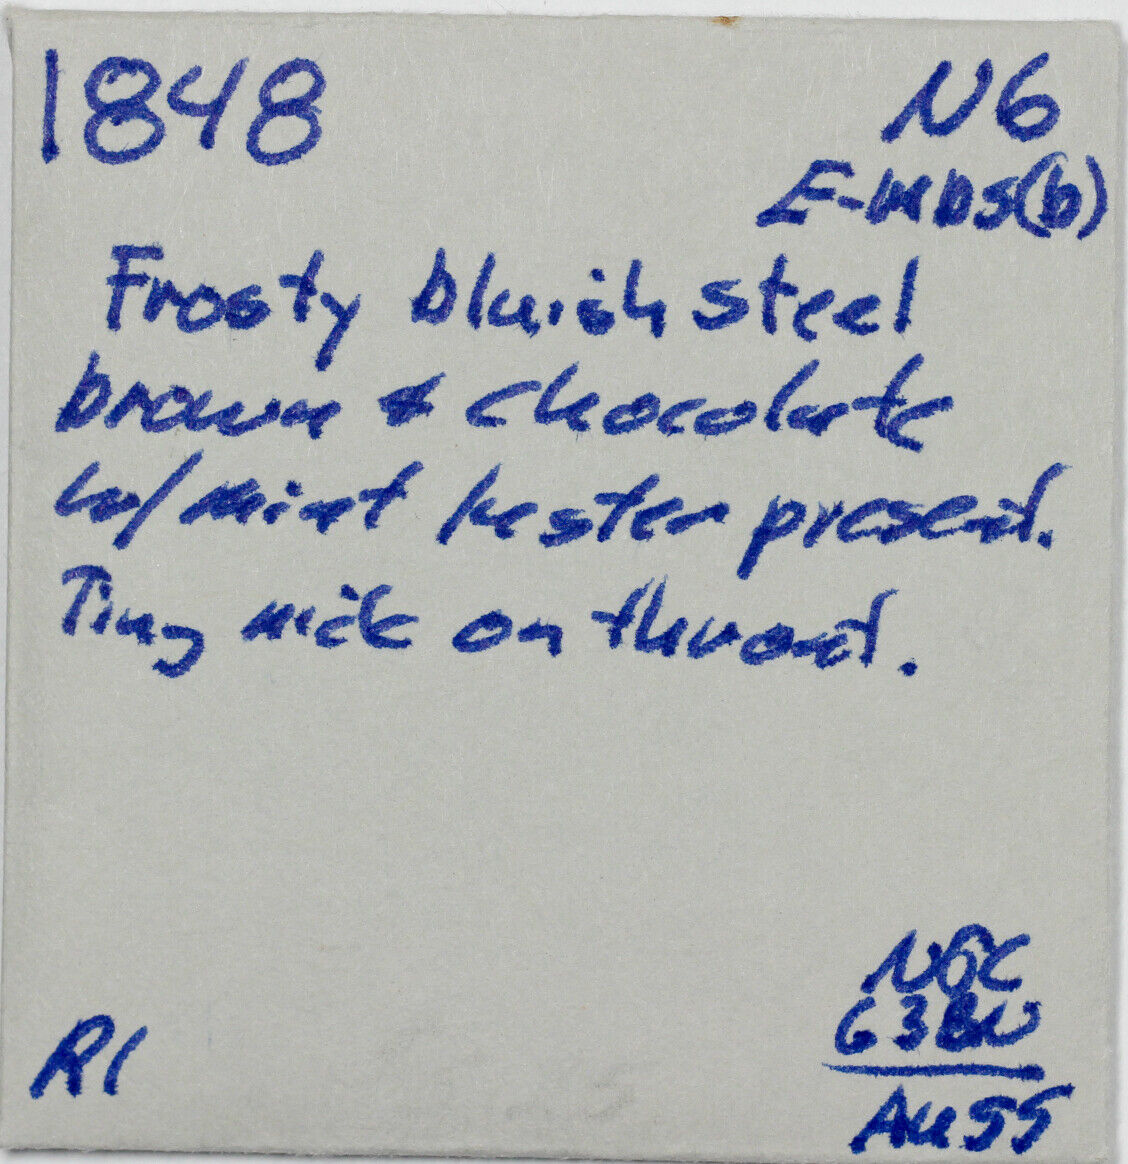 1848
N6
E-MDS(b)
Frosty bluish steel
brown & chocolate
w/ mint luster present.
Tiny nick on throat.
NGC
63BN
R1
AU55